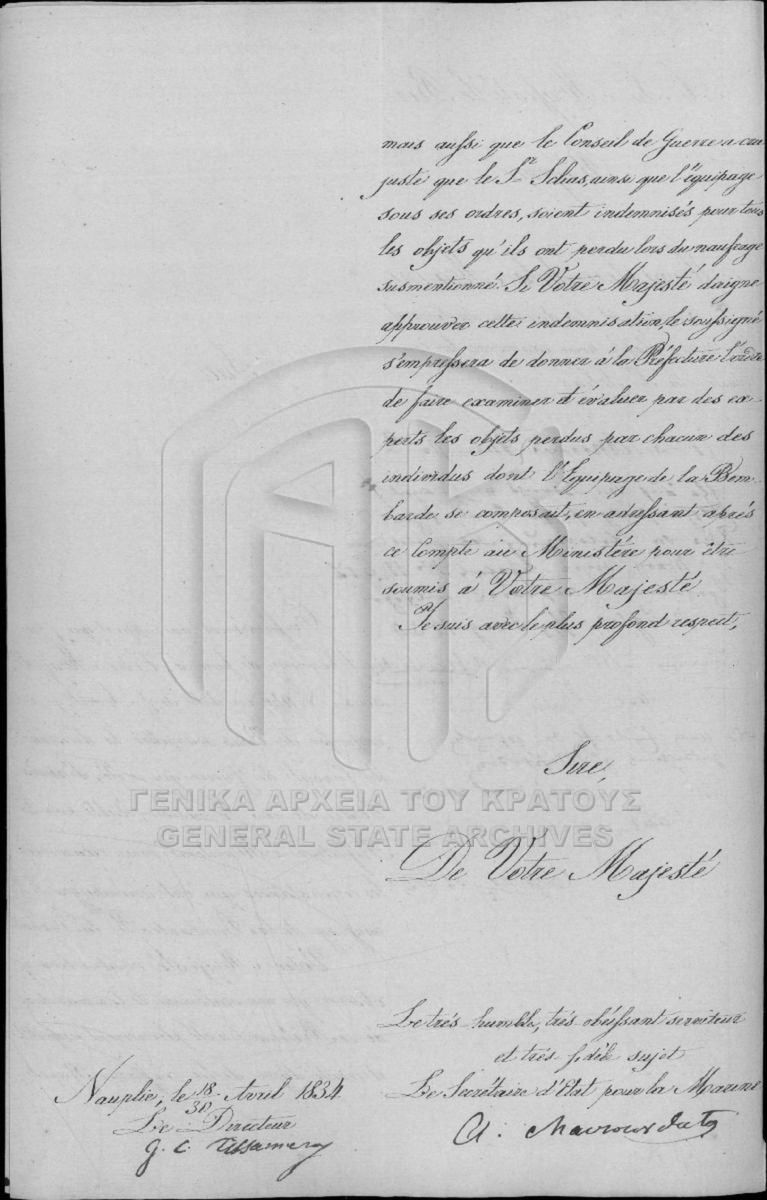 mais aussi que le Conseil de Guerre a cru
juste que le Sr. Schas, ainsi que l'équipage
sous ses ordres, soient indemnisés pour tous
les objets qu'ils ont perdu lors du naufrage
susmentionné. Si Votre Majesté daigne
approuver cette indemnisation, le soussigné
s'empressera de donner à la Préfecture l'ordre
de faire examiner et évaluer par des ex-
perts les objets perdus par chacun des
individus dont l'Equipage de la Bom-
barde se composait, en adressant après
ce Compte au Ministére pour être
soumis à Votre Majesté
Je suis avec le plus profond respect,
Sire,
ΓΕΝΙΚΑ ΑΡΧΕΙΑ ΤΟΥ ΚΡΑΤΟΥΣ
GENERAL STATE ARCHIVES
De Votre Majesté
Le trés humble, trés obéissant serviteur
et trés fidéle sujet
Le Secrétaire d'Etat pour la Marine
A. Mavrocordato
Nauplie, le 18/30 Avril 1834
Le Directeur
G. C.